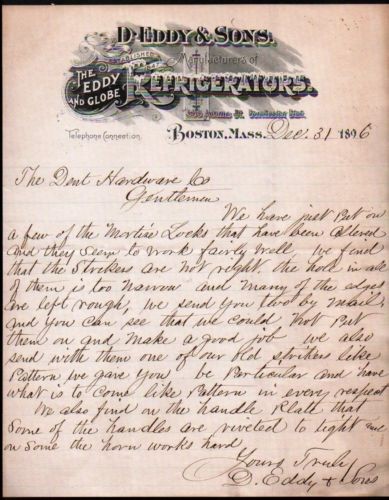 D. EDDY & SONS.
ESTABLISHED
Manufacturers of
THE EDDY AND GLOBE
REFRIGERATORS.
Dorchester Dist.
Telephone Connection.
BOSTON, MASS. Dec. 31 1896
The Dent Hardware Co
Gentlemen
We have just Put on
a few of the Mortise Locks that have been altered
and they seem to work fairly well we find
that the Strickers are not right. the hole in all
of them is too narrow and many of the edges
are left rough, we send you two by mail
and you can see that we could not Put
them on and make a good job we also
send with them one of our old strikers like
Pattern we gave you be Particular and have
what is to come like Pattern in every respect
We also find on the handle Plate that
Some of the handles are riveted to tight and
on Some the horn works hard
Yours Truly
D. Eddy & Sons